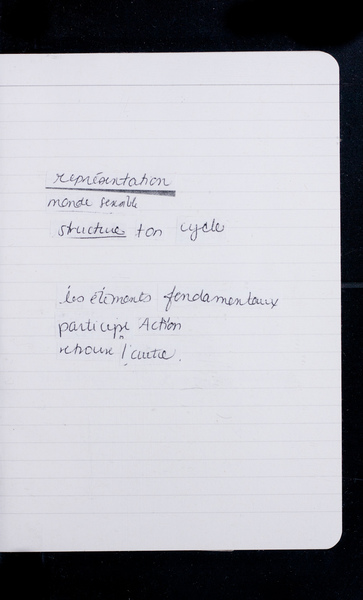 représentation
monde sensible
structure ton cycle
les éléments fondamentaux
participe Action
retrouve l'autre.